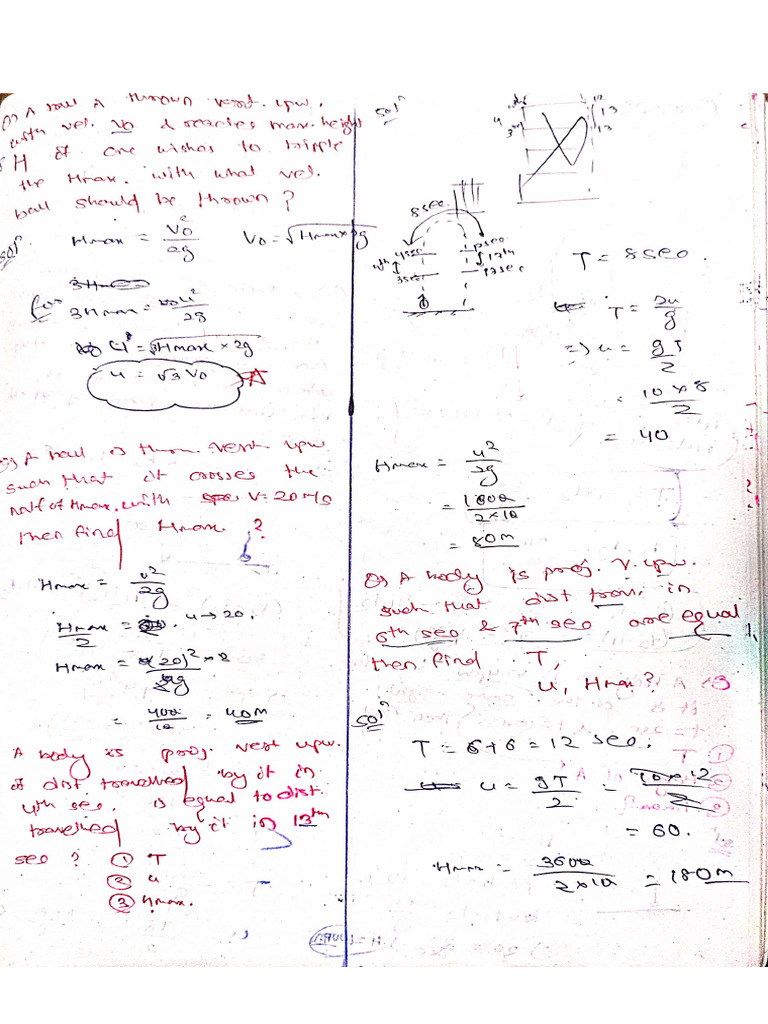 Q) A ball is thrown vert. upw.
with vel. V0 & reaches max. height
H if one wishes to tripple
the Hmax. with what vel.
ball should be thrown?
solⁿ. Hmax = V0² / 2g V0 = √Hmax × 2g
for 3Hmax = u² / 2g
u = √3Hmax × 2g
u = √3 V0
Q) A ball is thrown vert upw
such that it crosses the
half of Hmax. with V = 20 m/s
then find Hmax. ?
Hmax = u² / 2g
Hmax / 2 = u → 20.
Hmax = (20)² × 2 / 2g
= 400 / 10 = 40m
A body is proj. vert upw.
if dist. travelled by it in
4th sec. is equal to dist.
travelled by it in 13th
sec ? ① T
② u
③ Hmax.
solⁿ
12
13
4
3
8sec.
4th 4sec
3sec
12sec
T = 8sec.
T = 2u / g
=> u = gT / 2
= 10 × 8 / 2
= 40
Hmax = u² / 2g
= 1600 / 2×10
= 80m
Q) A body is proj. v. upw.
such that dist trav. in
6th sec & 7th sec are equal
then find T,
u, Hmax?
solⁿ
T = 6+6 = 12 sec.
u = gT / 2 = 10 × 12 / 2
= 60.
Hmax = 3600 / 2×10 = 180m